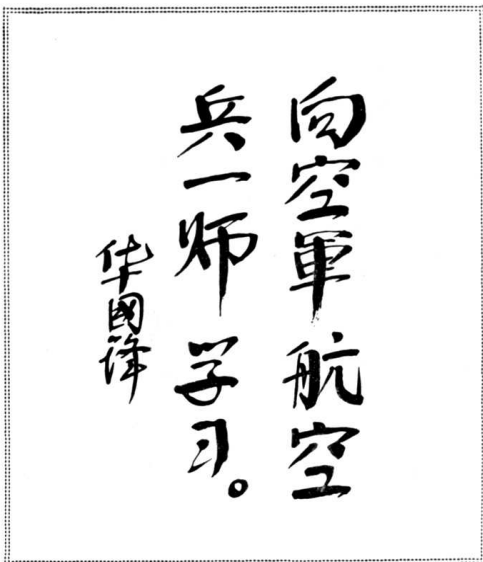 向空軍航空
兵一师学习。
华國锋